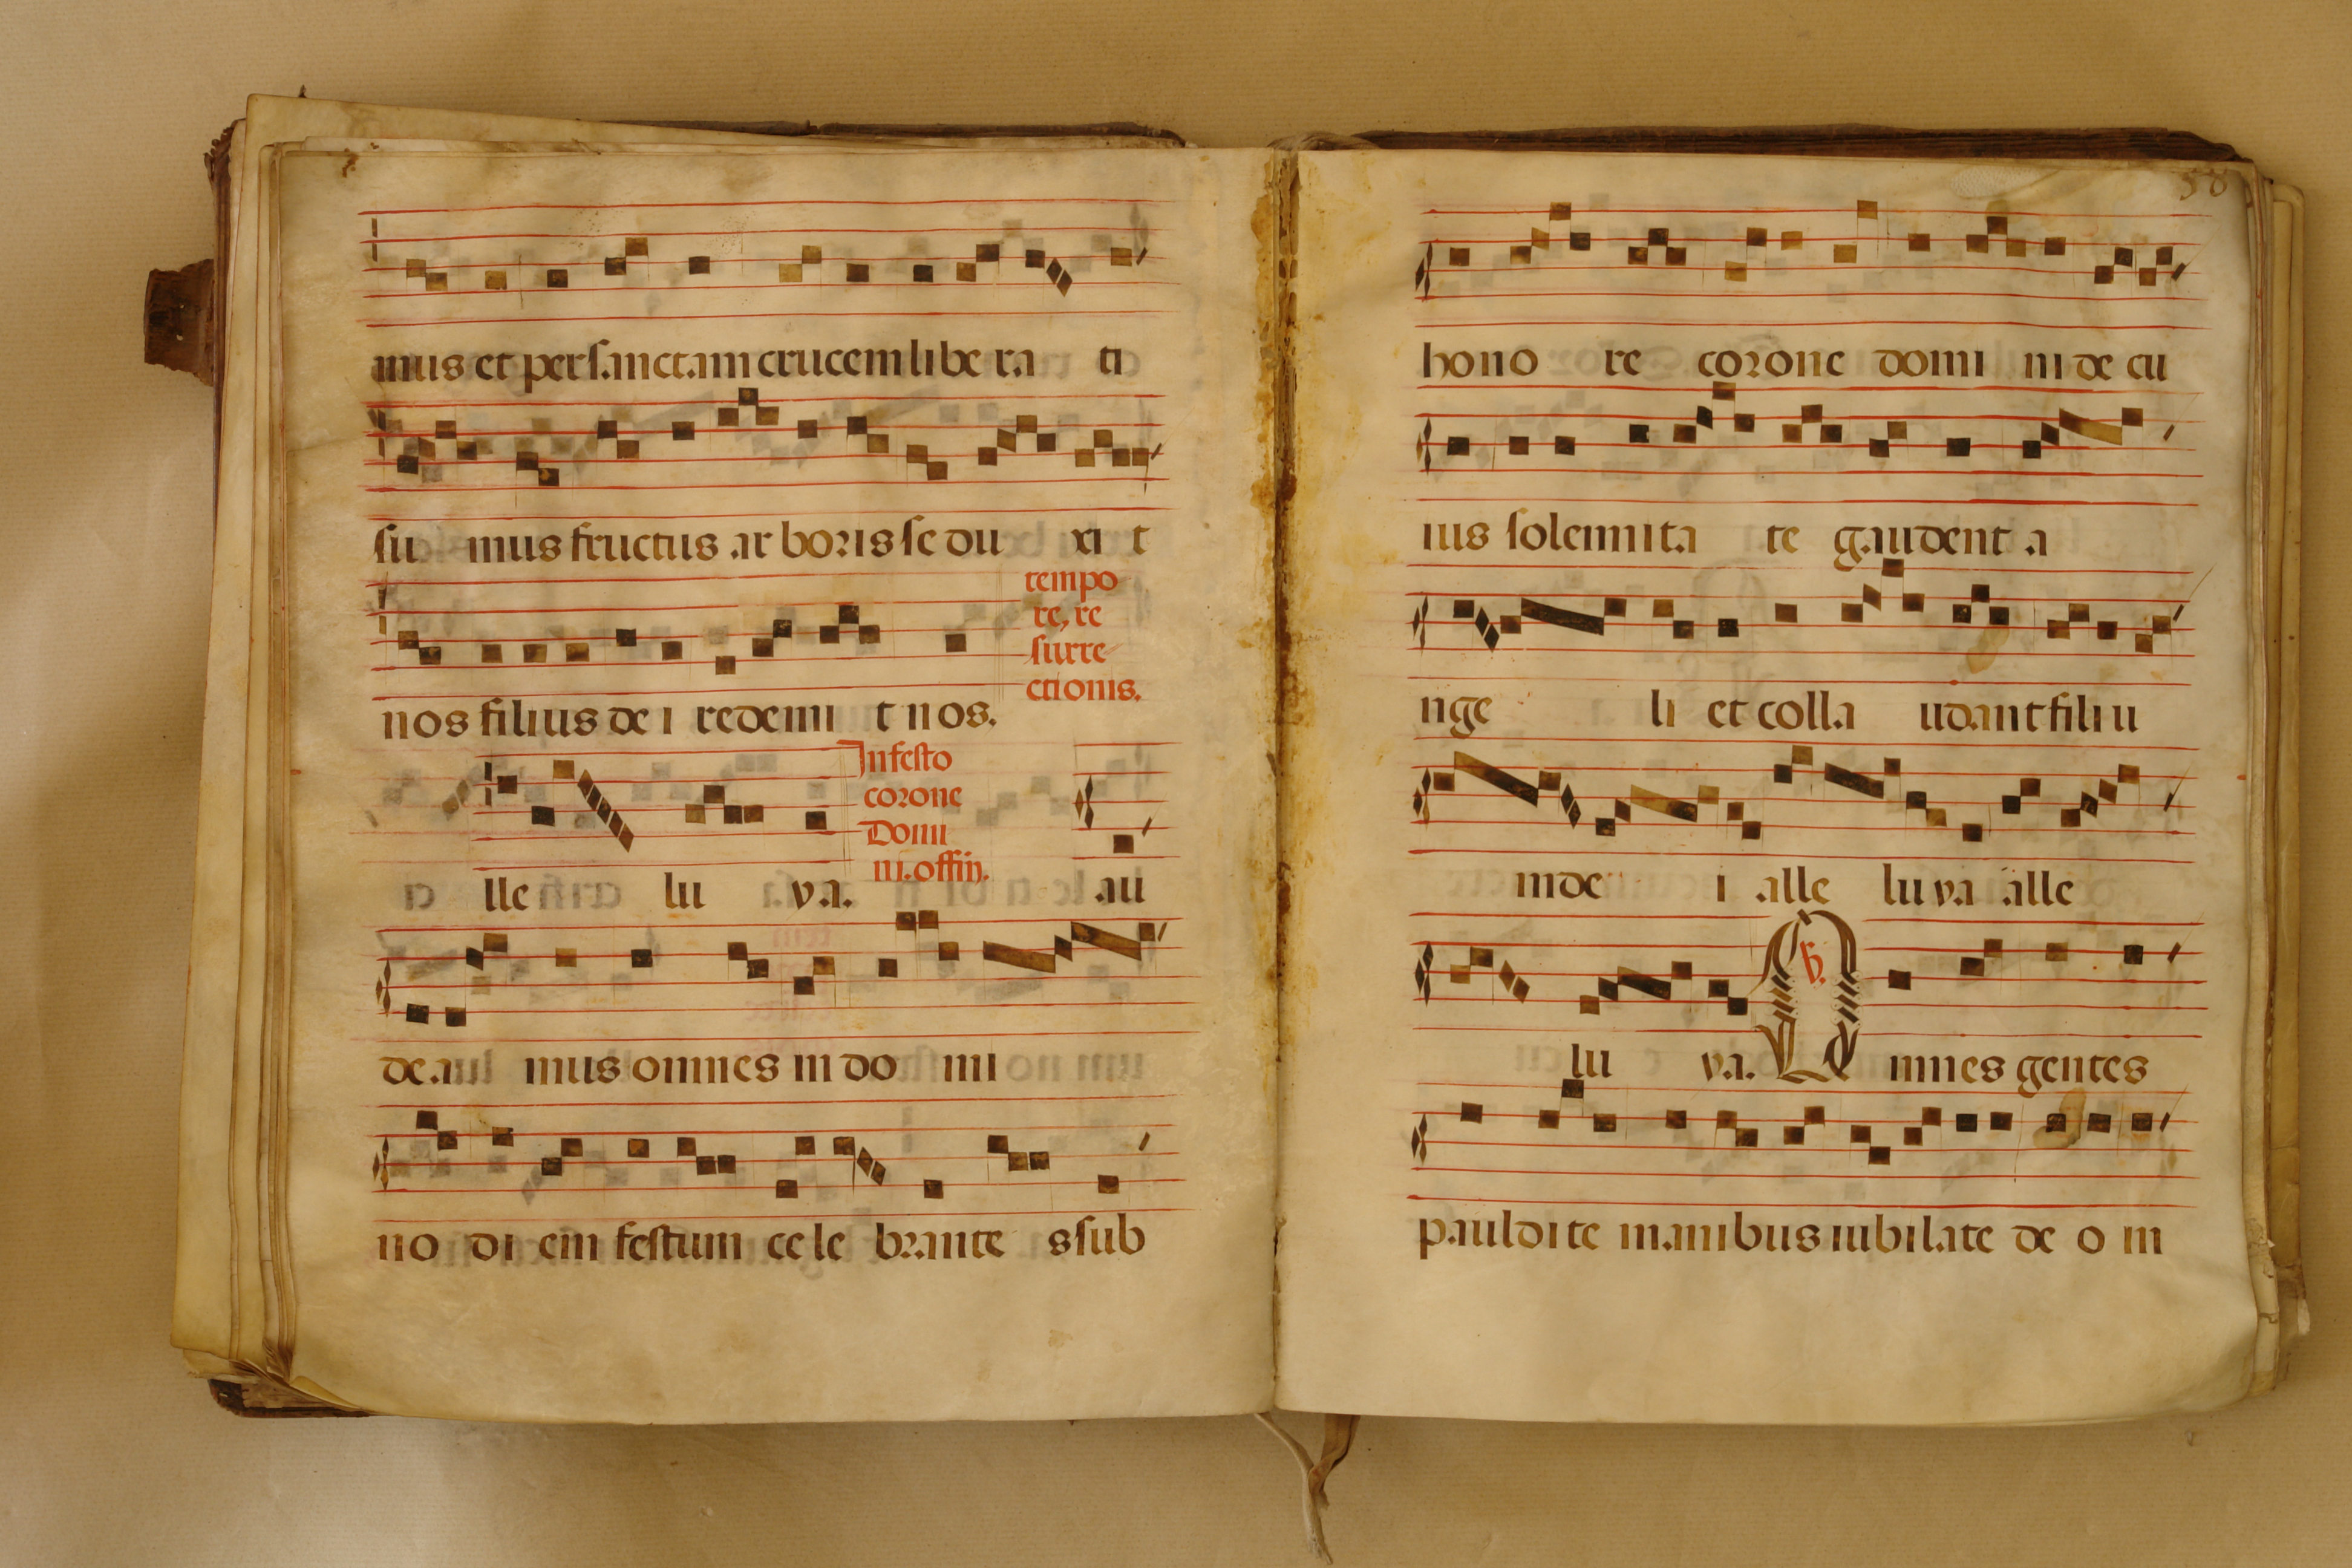 mus et per sanctam crucem libe ra ti
su mus fructus ar boris se du xi t
tempo
re, re
surre
ctionis.
nos filius de i redemi t nos.
In festo
corone
Domi
ni. offin.
lle lu ya. au
de a mus omnes in do mi
no di em festum ce le brante s sub
58
hono re corone domi ni de cu
ius solemnita te gaudent a
nge li et colla udant filiu
m de i alle lu ya alle
lu ya. O mnes gentes
paludite manibus iubilate de o in